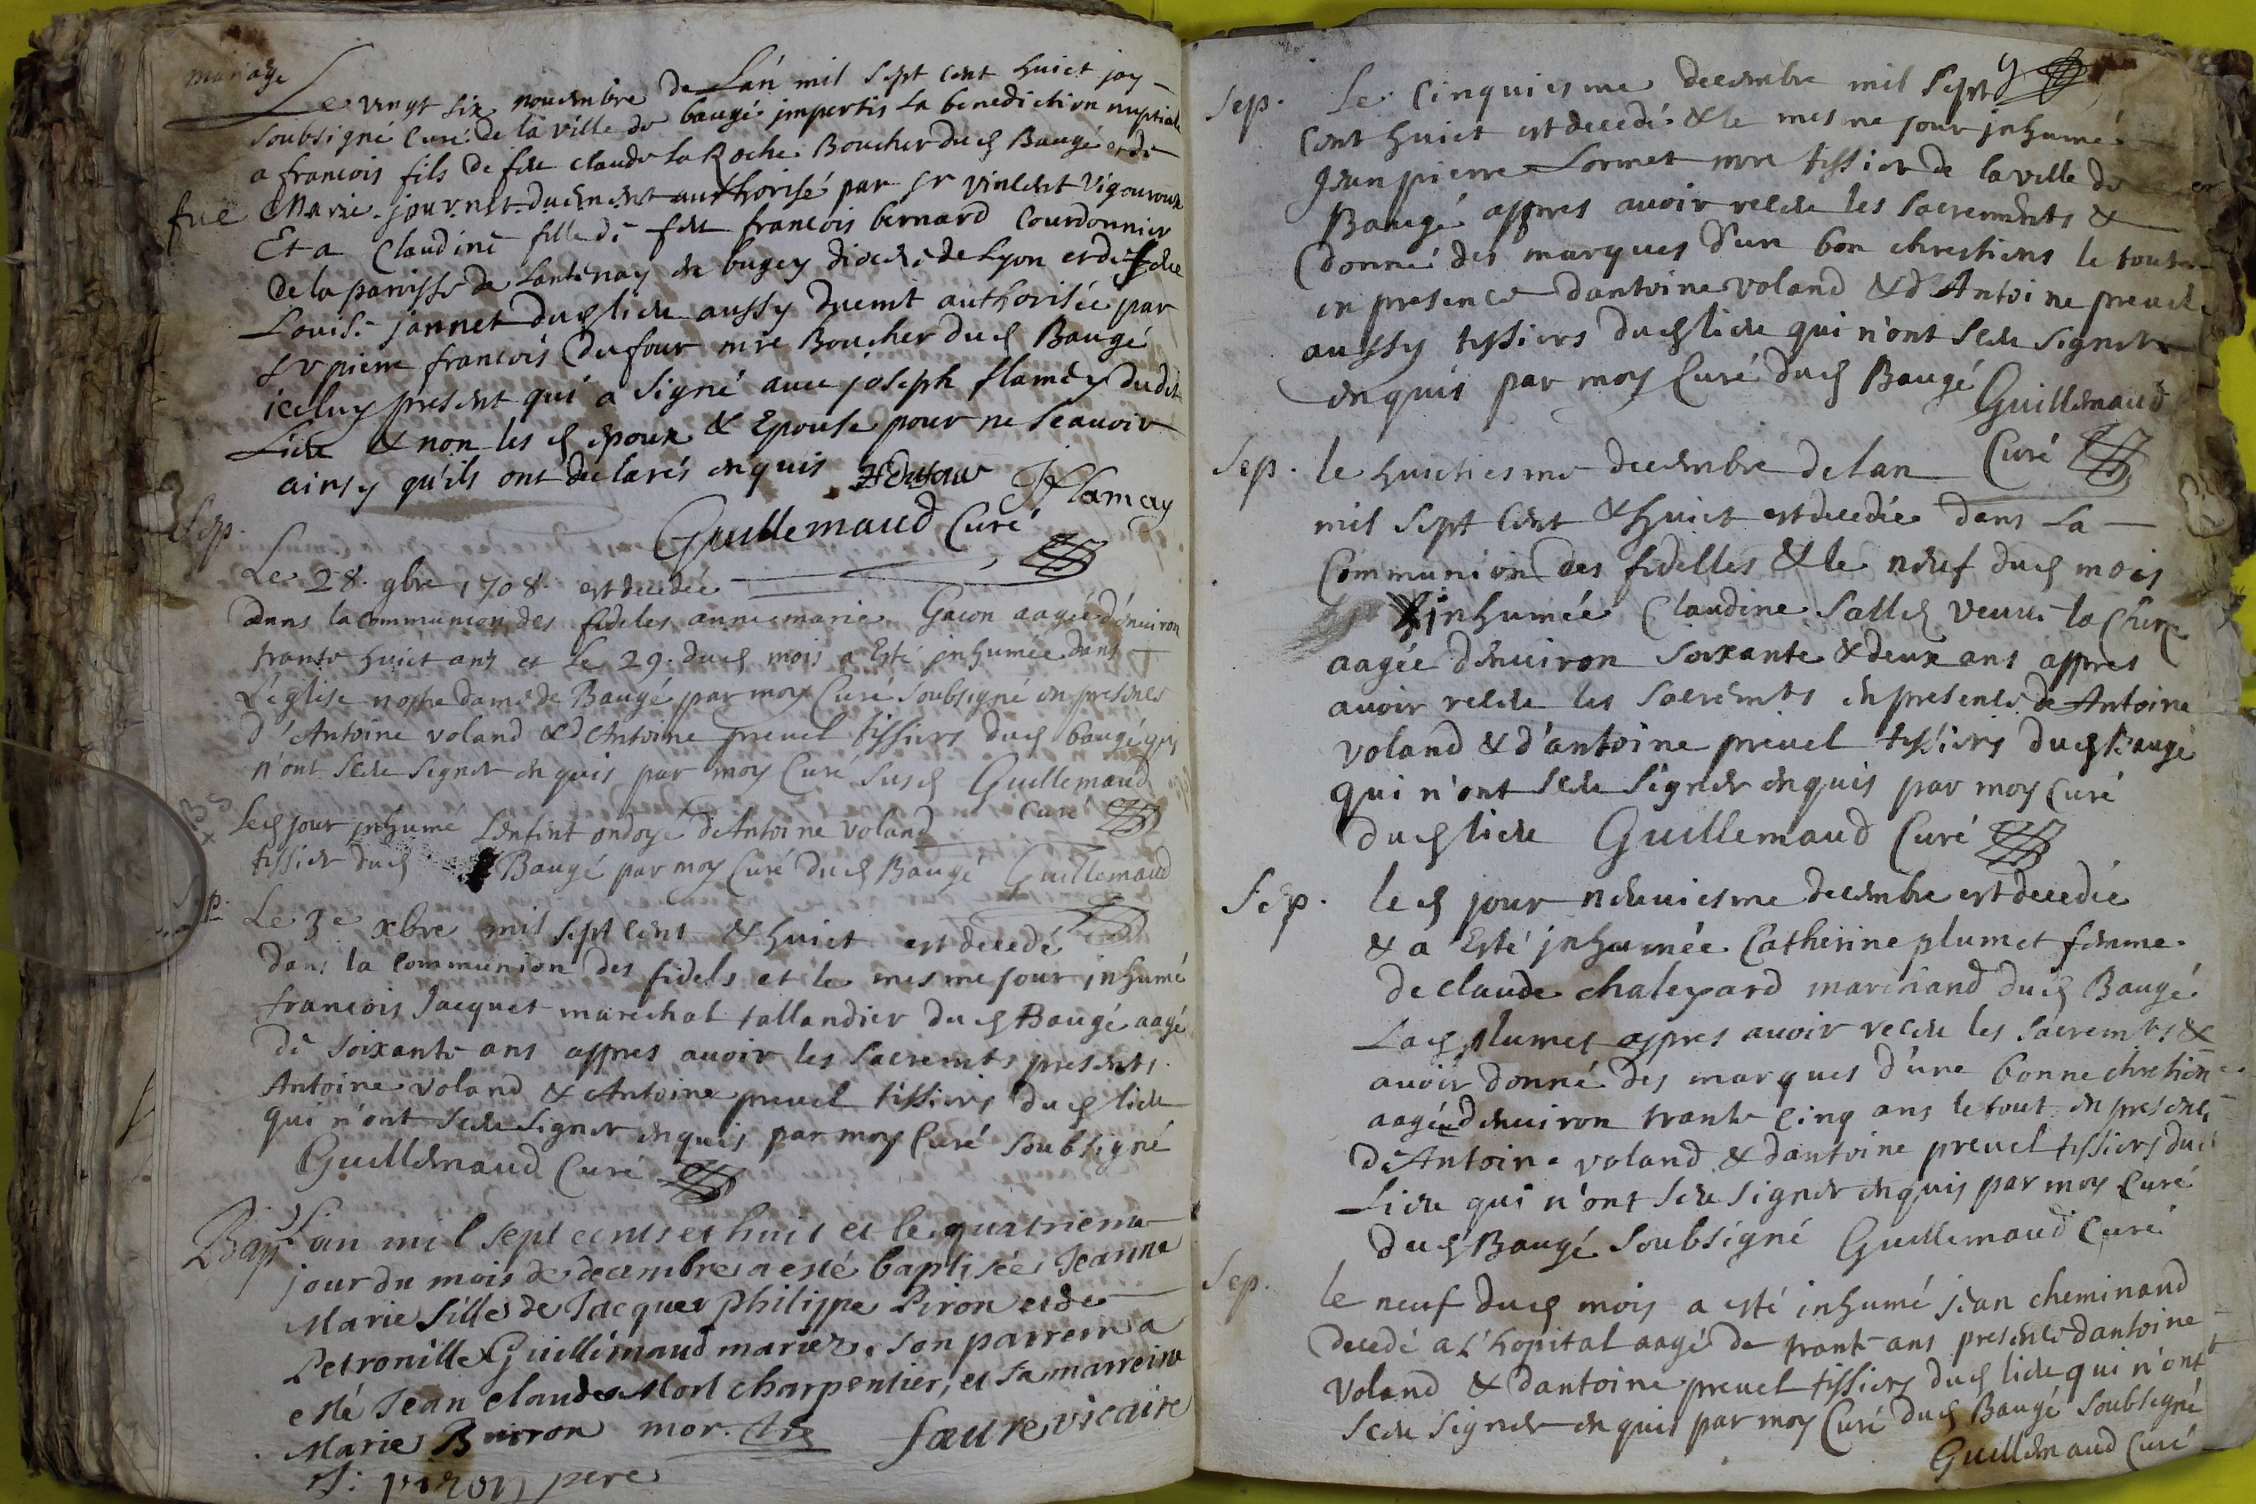 mariage
Le vingt six novembre de Lan mil sept cent huict jay
soubsigné Curé de la ville de baugé impertis La benediction nuptiale
a francois fils de feu claude La Roche Boucher dud Baugé et de
fue Marie journet duement authorisé par sr vincent vigouroux
Et a Claudine fille de feu francois bernard Courdonnier
de la paroisse de Lantenay en bugey diocese de Lyon et de feue
Louise jannet dud lieu aussy duemt authorisée par
sr pierre francois Dufour mre Boucher dud Baugé
iceluy present qui a signé avec joseph flamey dudit
Lieu & non les d epoux & Epouse pour ne scavoir
ainsy qu'ils ont declarés enquis J flamay
Guillemaud Curé
Sep.
Le 28. 9bre 1708 est decedée
dans la communion des fideles anne marie Gacon aagée d'environ
trante huict ans et Le 29. dud mois a Esté inhumée dans
L'eglise nostre dame de Baugé par moy Curé soubsigné en presence
d'Antoine voland & d'Antoine prevel tissiers dud baugé qui
n'ont sceu signer enquis par moy Curé susd Guillemaud
Curé
Led jour inhumé Lenfent ondoyé de Antoine voland
tissier dud Baugé par moy Curé dud Baugé Guillemaud
Sep.
Le 3e xbre mil sept cent & huict est decedé
dans la communion des fidels et le mesme jour inhumé
francois Jacquet marechal tallandier dud Baugé aagé
de soixante ans appres avoir les sacremts presents
Antoine voland & Antoine prevel tissiers dud lieu
qui n'ont sceu signer enquis par moy Curé soubsigné
Guillemaud Curé
Bap.
L'an mil sept cents et huit et le quatrieme
jour du mois de decembre a esté baptisée Jeanne
Marie fille de Jacques philippe Piron et de
Petronille Guillemaud mariez. son parrein a
esté Jean claude Morl charpentier, et sa marreine
Marie Buiron mor.
faure vicaire
piron pere
Sep. Le Cinquiesme decembre mil Sept
Cent huict est decedé & le mesme jour inhumé
Jean pierre Lormet mre tissier de la ville de
Baugé appres avoir receu les sacrements &
donné des marques d'un bon chrestiens le tout
en presence dantoine voland & d'Antoine prevel
aussy tissiers dud lieu qui n'ont sceu signer
enquis par moy Curé dud Baugé Guillemaud
Curé
Sep. le huictiesme decembre de lan
mil sept cent & huict est decedée dans La
Communion des fidelles & le neuf dud mois
inhumée Claudine Salled veuve
aagée d'environ soixante & deux ans appres
avoir receu les sacremts en presence de Antoine
voland & d'antoine prevel tissiers dud Baugé
qui n'ont sceu signer enquis par moy Curé
dud lieu Guillemaud Curé
Sep. le d jour neuviesme decembre est decedée
& a Esté inhumée Catherine plumet femme
de claude chaleyard marchand dud Baugé
Lad plumet appres avoir receu les sacremts &
avoir donné des marques d'une bonne chretienne
aagée d'environ trante cinq ans le tout en presence
de Antoine voland & dantoine prevel tissiers dud
Lieu qui n'ont sceu signer enquis par moy Curé
dud Baugé soubsigné Guillemaud Curé
Sep.
le neuf dud mois a esté inhumé jean cheminaud
decedé a L'hopital aagé de trante ans presence dantoine
voland & dantoine prevel tissiers dud lieu qui n'ont
sceu signer enquis par moy Curé dud Baugé soubsigné
Guillemaud Curé